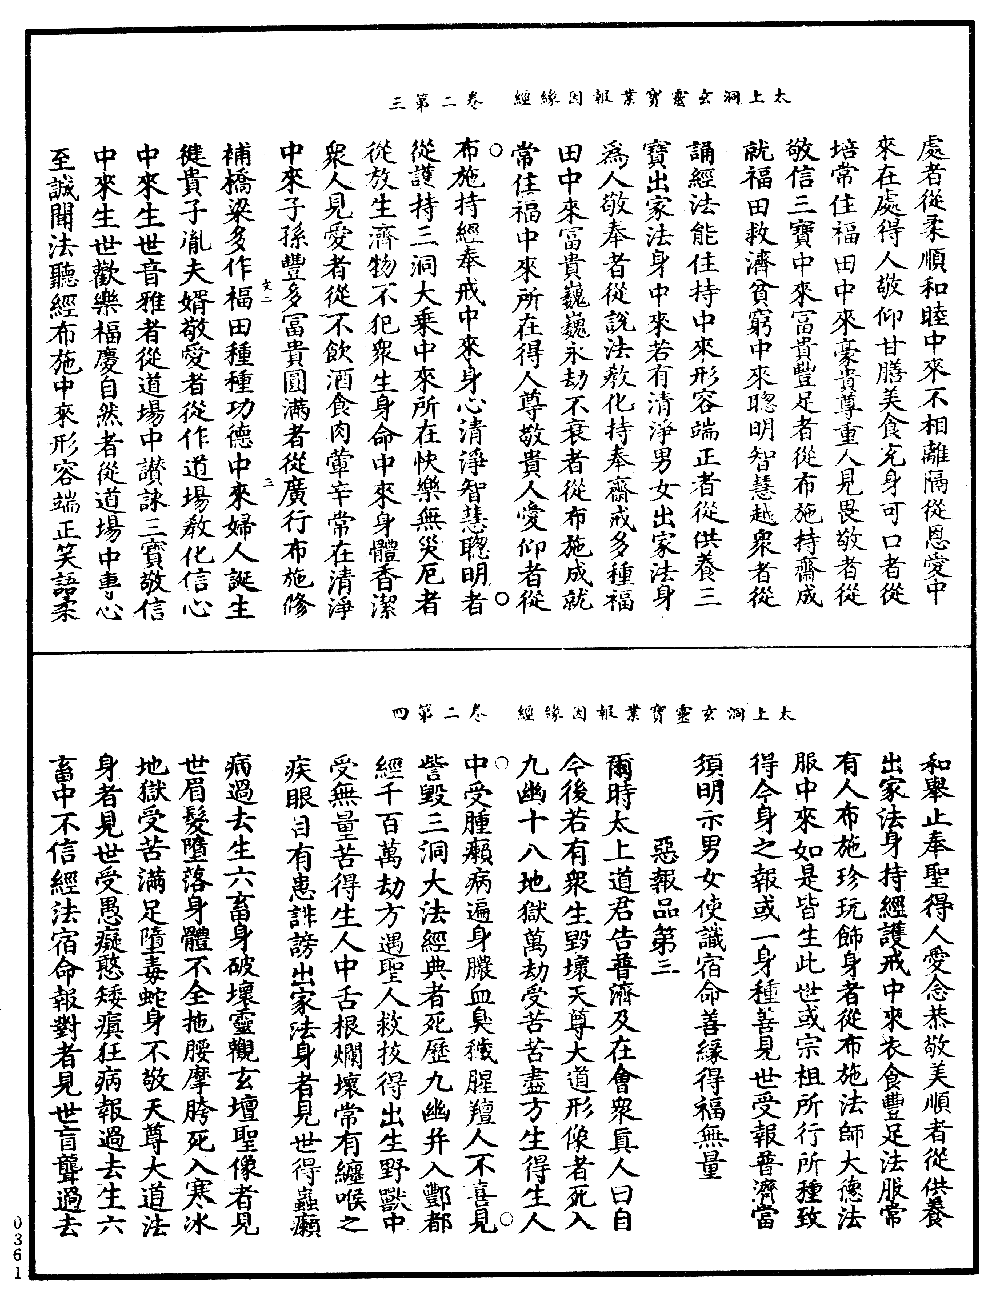 太上洞玄靈寶業報因緣經　卷二第三
處者從柔順和睦中來不相離隔從恩愛中
來在處得人敬仰甘膳美食充身可口者從
培常住福田中來豪貴尊重人見畏敬者從
敬信三寶中來富貴豐足者從布施持齋成
就福田救濟貧窮中來聰明智慧越衆者從
誦經法能住持中來形容端正者從供養三
寶出家法身中來若有清淨男女出家法身
爲人敬奉者從說法教化持奉齋戒多種福
田中來富貴巍巍永劫不衰者從布施成就
常住福中來所在得人尊敬貴人愛仰者從
布施持經奉戒中來身心清淨智慧聰明者
從護持三洞大乘中來所在快樂無災厄者
從放生濟物不犯衆生身命中來身體香潔
衆人見愛者從不飲酒食肉葷辛常在清淨
中來子孫豐多富貴圓滿者從廣行布施修
補橋梁多作福田種種功德中來婦人誕生
健貴子胤夫婿敬愛者從作道場教化信心
中來生世音雅者從道場中讚詠三寶敬信
中來生世歡樂福慶自然者從道場中專心
至誠聞法聽經布施中來形容端正笑語柔
太上洞玄靈寶業報因緣經　卷二第四
和舉止奉聖得人愛念恭敬美順者從供養
出家法身持經護戒中來衣食豐足法服常
有人布施珍玩飾身者從布施法師大德法
服中來如是皆生此世或宗祖所行所種致
得今身之報或一身種善見世受報普濟當
須明示男女使識宿命善緣得福無量
惡報品第三
爾時太上道君告普濟及在會衆眞人曰自
今後若有衆生毀壞天尊大道形像者死入
九幽十八地獄萬劫受苦苦盡方生得生人
中受腫癩病遍身膿血臭穢腥羶人不喜見
訾毀三洞大法經典者死歷九幽并入酆都
經千百萬劫方遇聖人救拔得出生野獸中
受無量苦得生人中舌根爛壞常有纏喉之
疾眼目有患誹謗出家法身者見世得蟲癩
病過去生六畜身破壞靈觀玄壇聖像者見
世眉髮墮落身體不全拖腰摩胯死入寒冰
地獄受苦滿足墮毒蛇身不敬天尊大道法
身者見世受愚癡憨矮瘨狂病報過去生六
畜中不信經法宿命報對者見世盲聾過去
0361